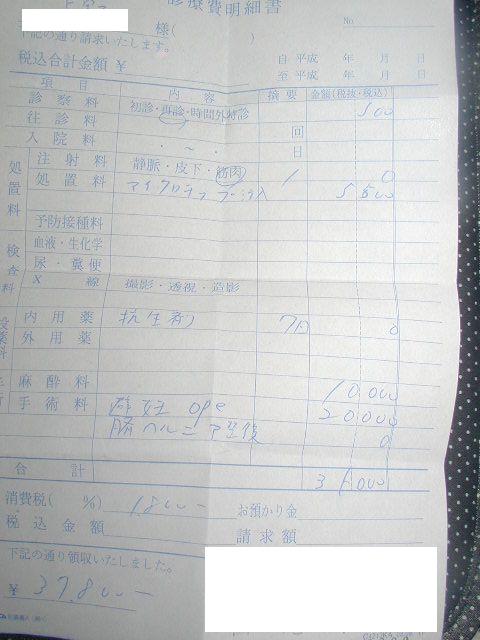 診療費明細書
様( No
下記の通り請求いたします。
税込合計金額 ¥
自 平成 年 月 日
至 平成 年 月 日
項目 内容 摘要 金額(税抜・税込)
診察料 初診・再診・時間外特診 500
往診料 回
入院料 ・ ~ ・ 日
処置料
注射料 静脈・皮下・筋肉 1 0
処置料 マイクロチップ 5500
予防接種料
検査料
血液・生化学
尿・糞便
X線 撮影・透視・造影
内用薬 抗生剤 7日 0
外用薬
麻酔料 10000
手術料 避妊 ope 20000
臍ヘルニア整復 0
合計 36000
消費税( %) 1800- お預かり金
税込金額 請求額
下記の通り領収いたしました。
¥ 37,800-